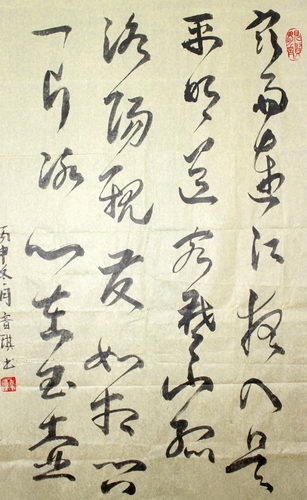 寒雨連江夜入吳
平明送客楚山孤
洛陽親友如相問
一片冰心在玉壺
丙申冬月琪书